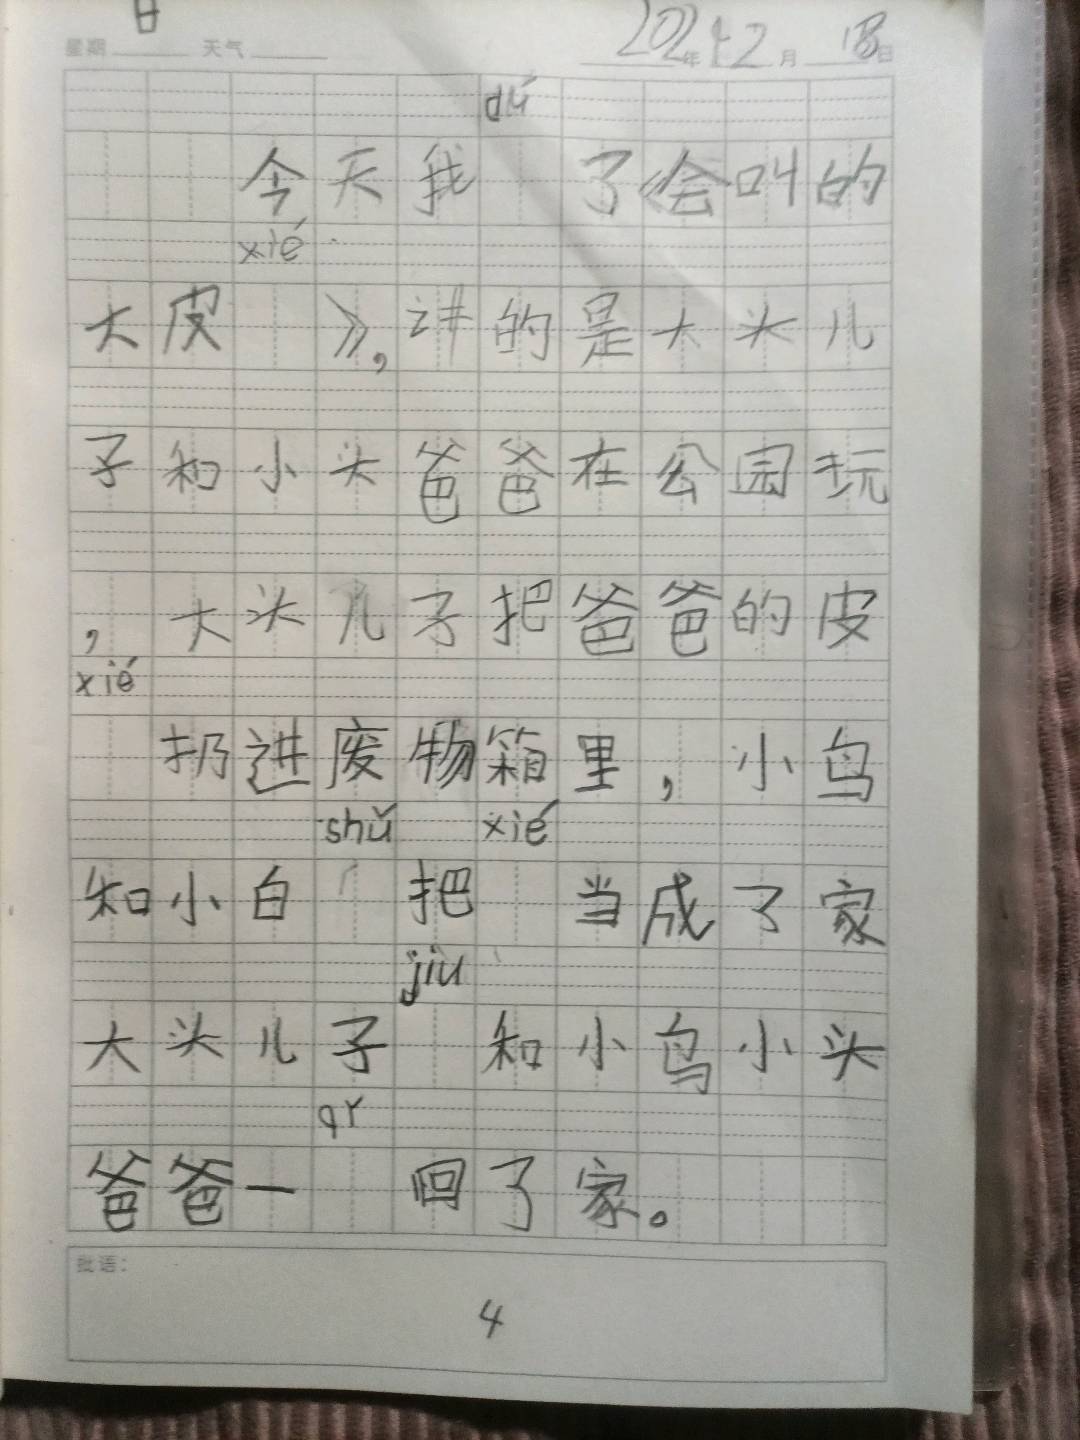 星期 日 天气 2024年12月18日
dú
今天我 了《会叫的
xié
大皮 》,讲的是大头儿
子和小头爸爸在公园玩
,大头儿子把爸爸的皮
xié
扔进废物箱里,小鸟
shǔ xié
和小白 把 当成了家
jiù
大头儿子 和小鸟小头
qr
爸爸一 回了家。
批语:
4